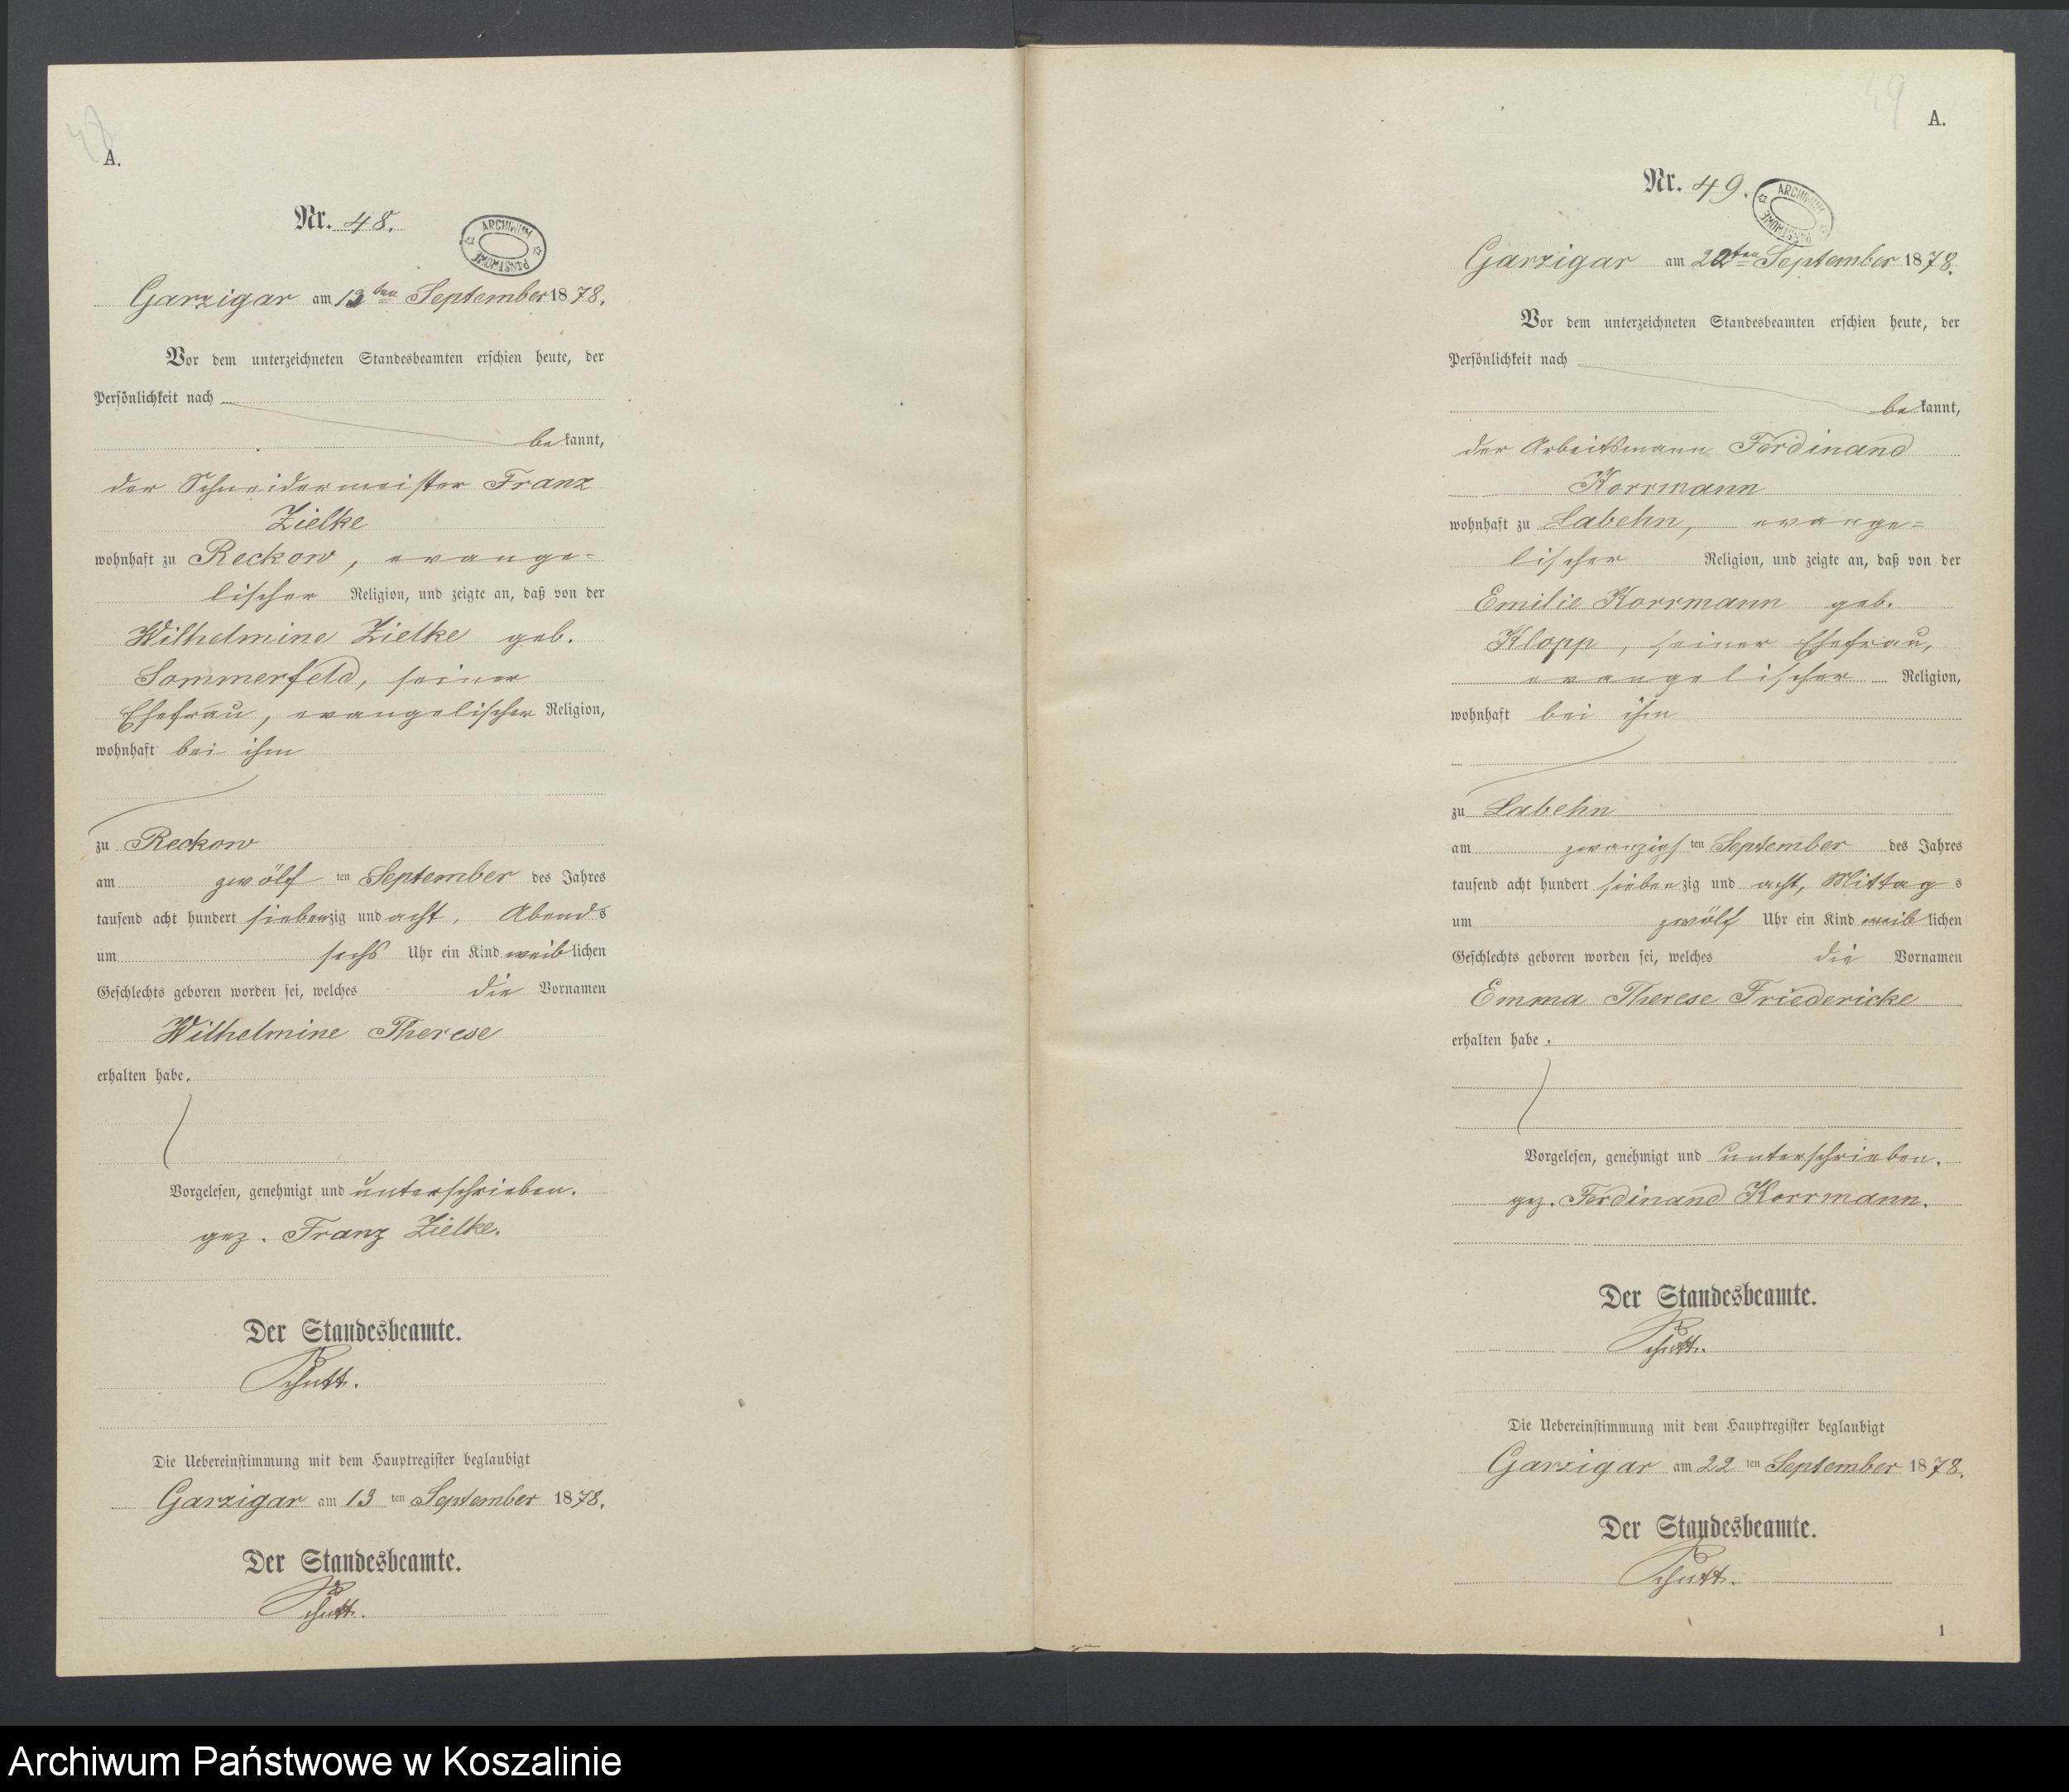 48
A.
Nr. 48.
ARCHIWUM PAŃSTWOWE
Garzigar am 13ten September 1878.
Vor dem unterzeichneten Standesbeamten erschien heute, der
Persönlichkeit nach
bekannt,
der Schneidermeister Franz
Zielke
wohnhaft zu Reckow, evange=
lischer Religion, und zeigte an, daß von der
Wilhelmine Zielke geb.
Sommerfeld, seiner
Ehefrau, evangelischer Religion,
wohnhaft bei ihm
zu Reckow
am zwölf ten September des Jahres
tausend acht hundert siebenzig und acht, Abends
um sechs Uhr ein Kind weiblichen
Geschlechts geboren worden sei, welches die Vornamen
Wilhelmine Therese
erhalten habe.
Vorgelesen, genehmigt und unterschrieben.
gez. Franz Zielke.
Der Standesbeamte.
Schutt.
Die Uebereinstimmung mit dem Hauptregister beglaubigt
Garzigar am 13 ten September 1878.
Der Standesbeamte.
Schutt.
49
A.
Nr. 49.
ARCHIWUM PAŃSTWOWE
Garzigar am 22ten September 1878.
Vor dem unterzeichneten Standesbeamten erschien heute, der
Persönlichkeit nach
bekannt,
der Arbeitsmann Ferdinand
Korrmann
wohnhaft zu Labehn, evange=
lischer Religion, und zeigte an, daß von der
Emilie Korrmann geb.
Klopp, seiner Ehefrau,
evangelischer Religion,
wohnhaft bei ihm
zu Labehn
am zwanzigsten September des Jahres
tausend acht hundert siebenzig und acht, Mittags
um zwölf Uhr ein Kind weiblichen
Geschlechts geboren worden sei, welches die Vornamen
Emma Therese Friedericke
erhalten habe.
Vorgelesen, genehmigt und unterschrieben.
gez. Ferdinand Korrmann.
Der Standesbeamte.
Schutt.
Die Uebereinstimmung mit dem Hauptregister beglaubigt
Garzigar am 22 ten September 1878.
Der Standesbeamte.
Schutt.
1
Archiwum Państwowe w Koszalinie